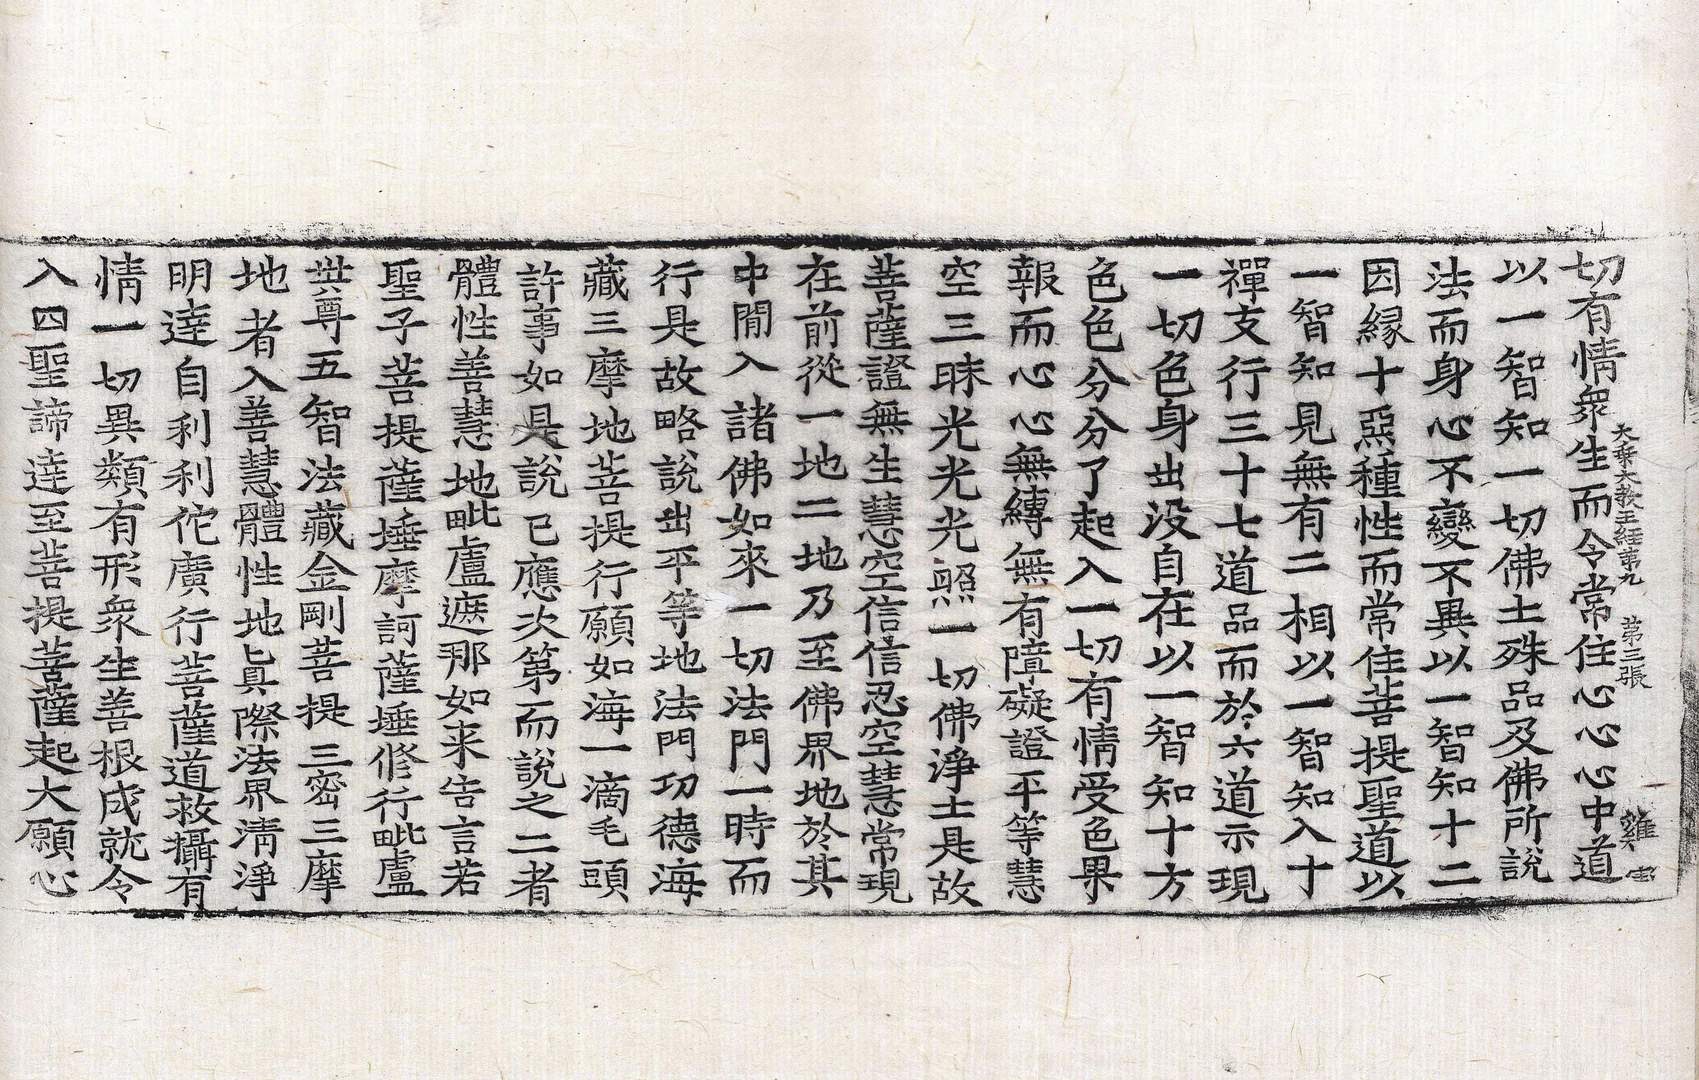 大乘大教王經第九　第三張　雞
切有情衆生而令常住心心心中道
以一智知一切佛土殊品及佛所說
法而身心不變不異以一智知十二
因緣十惡種性而常住菩提聖道以
一智知見無有二相以一智知入十
禪支行三十七道品而於六道示現
一切色身出没自在以一智知十方
色色分分了起入一切有情受色果
報而心心無縛無有障礙證平等慧
空三昧光光光照一切佛淨土是故
菩薩證無生慧空信信忍空慧常現
在前從一地二地乃至佛界地於其
中閒入諸佛如來一切法門一時而
行是故略說出平等地法門功德海
藏三摩地菩提行願如海一滴毛頭
許事如是說已應次第而說之二者
體性善慧地毗盧遮那如来告言若
聖子菩提薩埵摩訶薩埵修行毗盧
世尊五智法藏金剛菩提三密三摩
地者入善慧體性地真際法界清淨
明達自利利佗廣行菩薩道救攝有
情一切異類有形衆生善根成就令
入四聖諦達至菩提菩薩起大願心